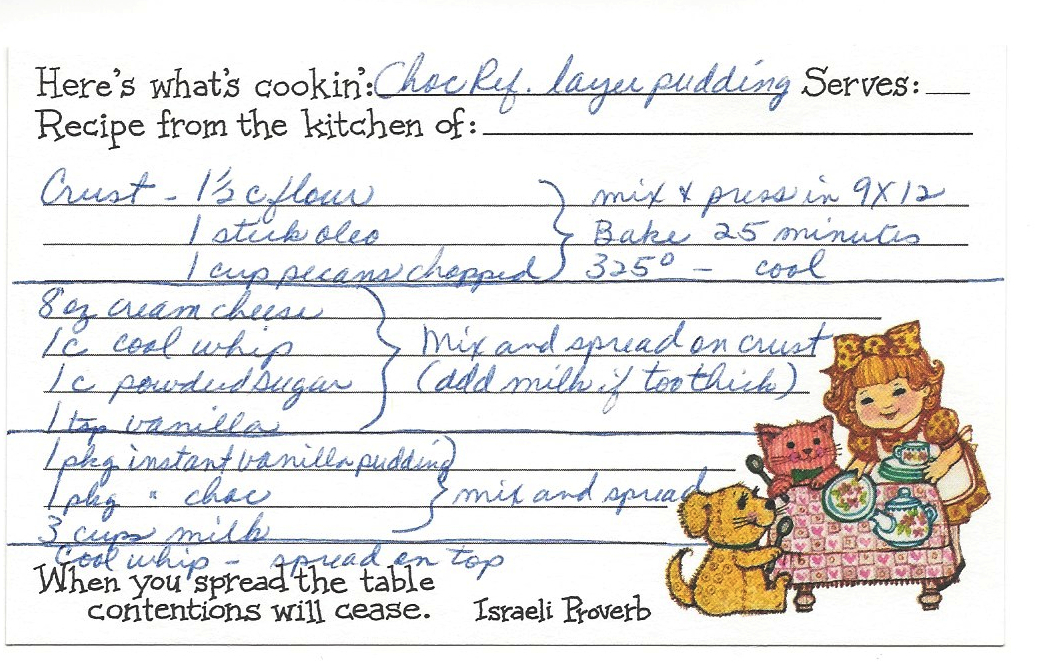 Here's what's cookin': Choc Ref. layer pudding Serves:
Recipe from the kitchen of:
Crust - 1½ c flour } mix & press in 9X12
1 stick oleo Bake 25 minutes
1 cup pecans chopped 325° - cool
8 oz cream cheese
1c cool whip } Mix and spread on crust
1c powded sugar (add milk if too thick)
1 tsp vanilla
1 pkg instant vanilla pudding
1 pkg " choc } mix and spread
3 cups milk
Cool whip - spread on top
When you spread the table
contentions will cease. Israeli Proverb